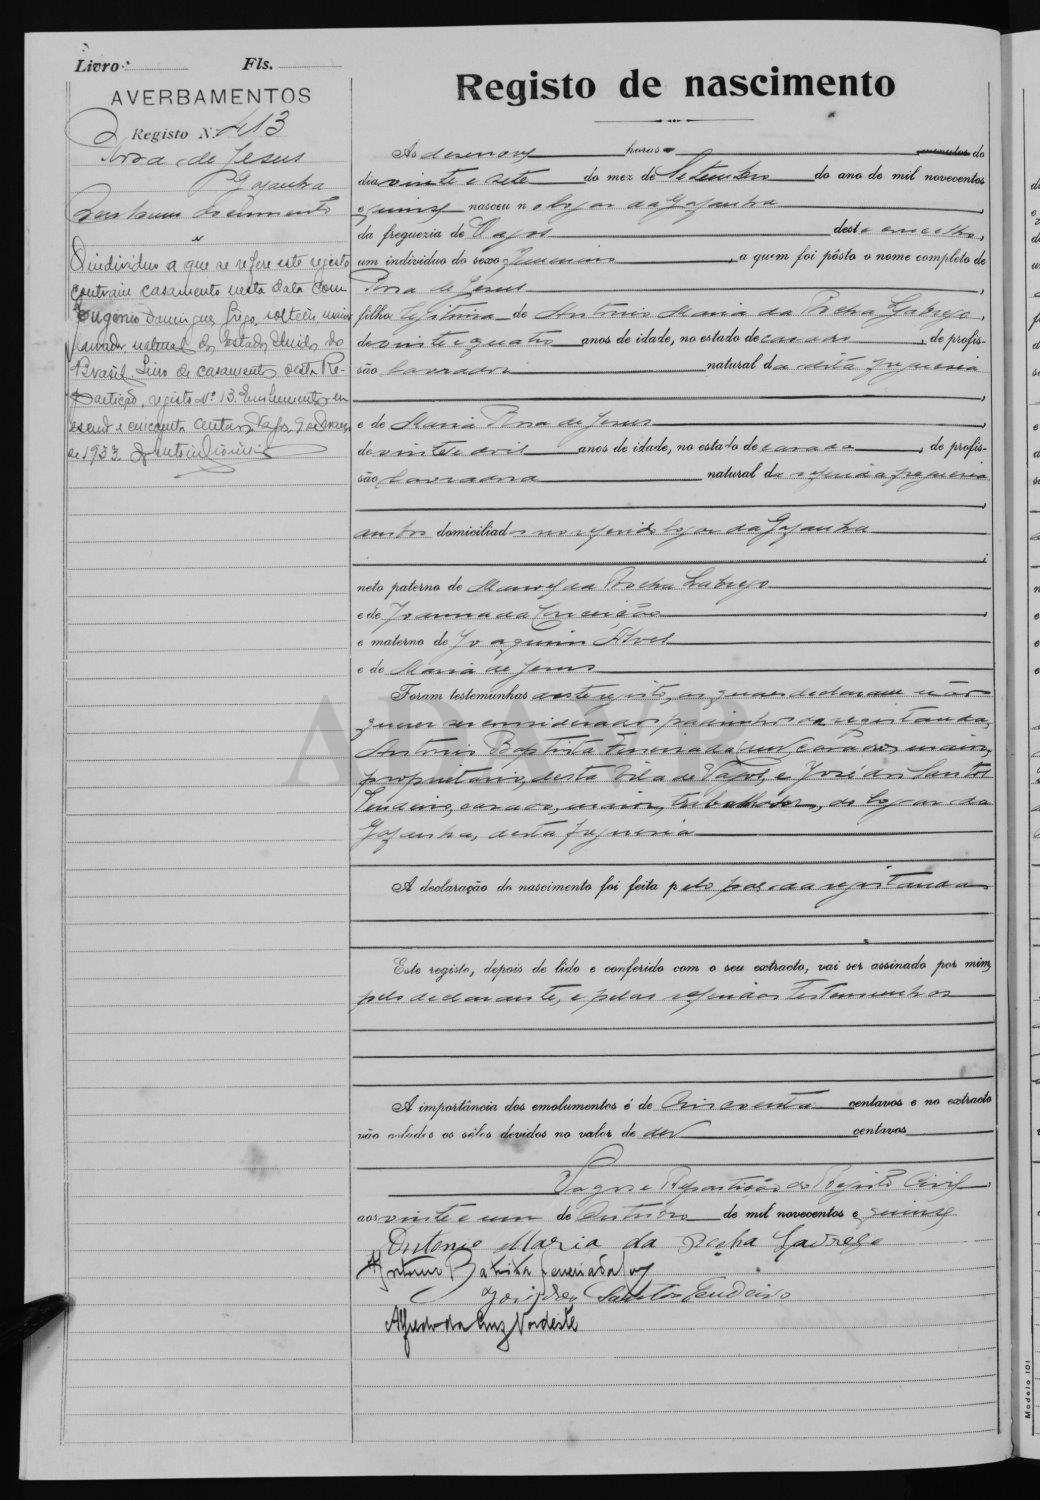 Livro Fls.
AVERBAMENTOS
Registo N.º 413
Rosa de Jesus
Gafanha
O individuo a que se refere este registo
contraiu casamento nesta data com
Eugénio Domingues Grego, solteiro, maior
natural dos Estados Unidos do
Brasil. Livro de casamentos desta Re-
partição, registo Nº 13. Emolumentos
escud e cincoenta centavos. Vagos,
de 1933.
Registo de nascimento
Ás desenove horas do
dia vinte e sete do mez de Setembro do ano de mil novecentos
e quinze nasceu no logar da Gafanha
da freguezia de Vagos deste concelho,
um individuo do sexo femenino, a quem foi pôsto o nome completo de
Rosa de Jesus
filha legitima de Antonio Maria da Rocha Labrego,
de vinte e quatro anos de idade, no estado de casado, de profis-
são lavrador natural da dita freguesia
e de Maria Rosa de Jesus
de vinte e anos de idade, no estado de casada, de profis-
são lavradora natural da referida freguesia
ambos domiciliados no referido logar da Gafanha
neto paterno de Manoel da Rocha Labrego
e de Joanna da Conceição
e materno de Joaquim Alves
e de Maria de Jesus
Foram testemunhas deste registo, os quaes declararam não
querer ser considerados padrinhos da registanda,
Antonio Baptista Ferreira da Luz, casado, maior,
proprietario, desta Vila de Vagos, e José dos Santos
Tendeiro, casado, maior, trabalhador, do logar da
Gafanha, desta freguesia
A declaração do nascimento foi feita pelo pae da registanda
Este registo, depois de lido e conferido com o seu extracto, vai ser assinado por mim,
pelo declarante, e pelas referidas testemunhas
A importância dos emolumentos é de Cincoenta centavos e no extracto
vão colados os sêlos devidos no valor de dez centavos
Vagos e Repartição do Registo Civil,
aos vinte e um de Outubro de mil novecentos e quinze
Antonio Maria da Rocha Lavrego
Batista Ferreira da Luz
José dos Santos Tendeiro
Alfredo da Cruz Nordeste
ADAVR
Modelo 101